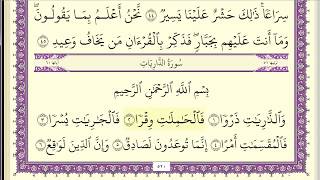 سِرَاعًا ذَٰلِكَ حَشْرٌ عَلَيْنَا يَسِيرٌ ٤٤ نَّحْنُ أَعْلَمُ بِمَا يَقُولُونَ
وَمَا أَنتَ عَلَيْهِم بِجَبَّارٍ فَذَكِّرْ بِالْقُرْءَانِ مَن يَخَافُ وَعِيدِ ٤٥
سُورَةُ الذَّارِيَاتِ
بِسْمِ اللَّهِ الرَّحْمَٰنِ الرَّحِيمِ
وَالذَّٰرِيَٰتِ ذَرْوًا ١ فَالْحَٰمِلَٰتِ وِقْرًا ٢ فَالْجَٰرِيَٰتِ يُسْرًا ٣
فَالْمُقَسِّمَٰتِ أَمْرًا ٤ إِنَّمَا تُوعَدُونَ لَصَادِقٌ ٥ وَإِنَّ الدِّينَ لَوَٰقِعٌ ٦
٥٢٠